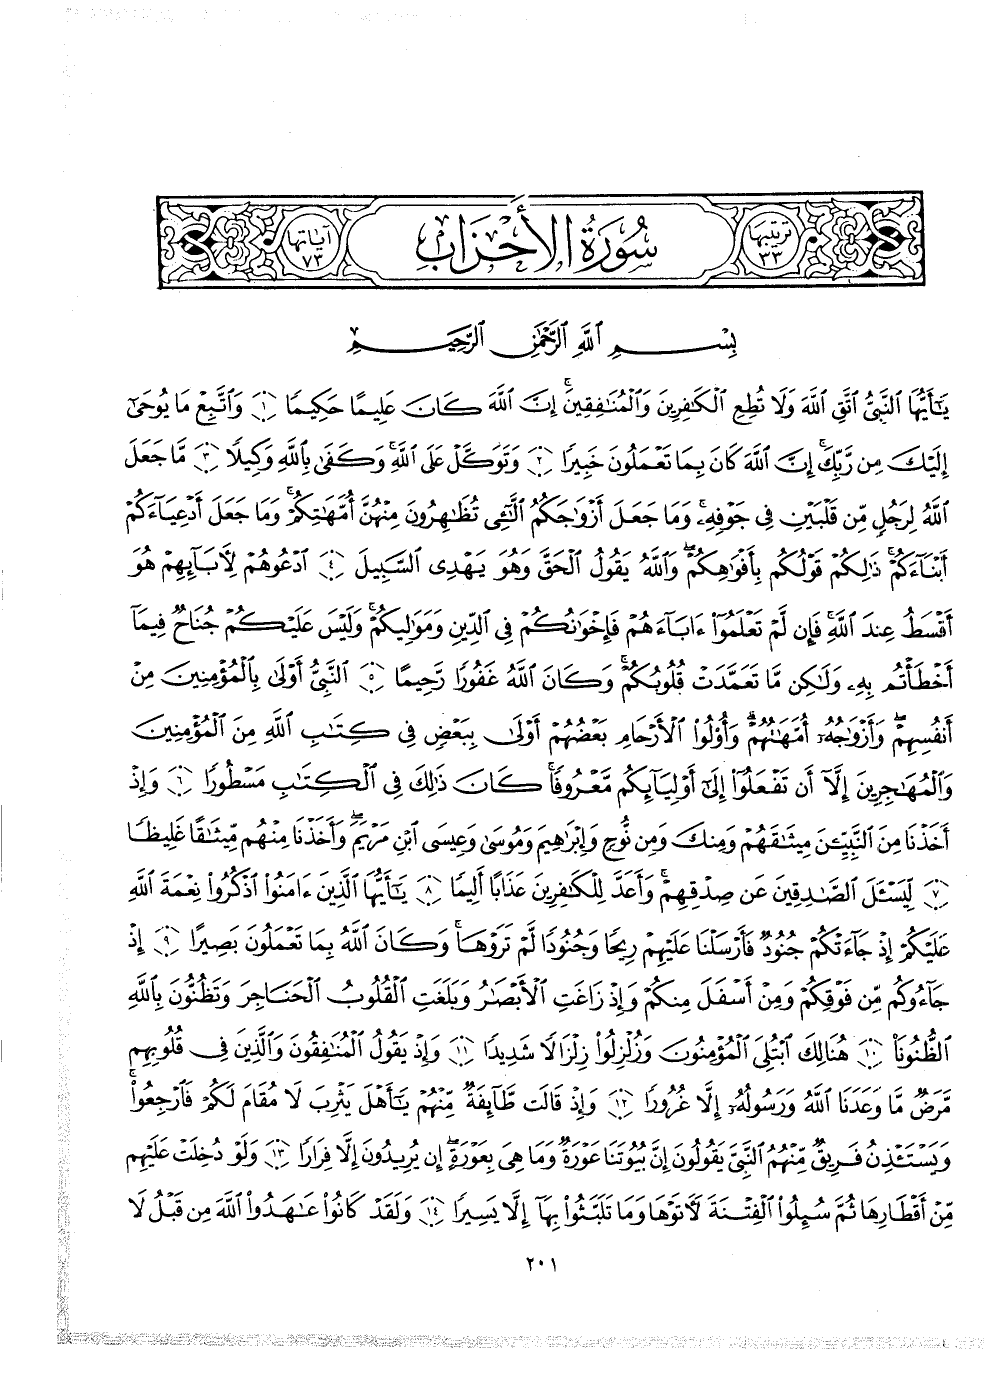 ترتيبها ٣٣ سُورَةُ الأَحْزَابِ آياتها ٧٣
بِسْمِ ٱللَّهِ ٱلرَّحْمَٰنِ ٱلرَّحِيمِ
يَٰٓأَيُّهَا ٱلنَّبِىُّ ٱتَّقِ ٱللَّهَ وَلَا تُطِعِ ٱلْكَٰفِرِينَ وَٱلْمُنَٰفِقِينَ ۚ إِنَّ ٱللَّهَ كَانَ عَلِيمًا حَكِيمًا ﴿١﴾ وَٱتَّبِعْ مَا يُوحَىٰٓ
إِلَيْكَ مِن رَّبِّكَ ۚ إِنَّ ٱللَّهَ كَانَ بِمَا تَعْمَلُونَ خَبِيرًا ﴿٢﴾ وَتَوَكَّلْ عَلَى ٱللَّهِ ۚ وَكَفَىٰ بِٱللَّهِ وَكِيلًا ﴿٣﴾ مَّا جَعَلَ
ٱللَّهُ لِرَجُلٍ مِّن قَلْبَيْنِ فِى جَوْفِهِۦ ۚ وَمَا جَعَلَ أَزْوَٰجَكُمُ ٱلَّٰٓـِٔى تُظَٰهِرُونَ مِنْهُنَّ أُمَّهَٰتِكُمْ ۚ وَمَا جَعَلَ أَدْعِيَآءَكُمْ
أَبْنَآءَكُمْ ۚ ذَٰلِكُمْ قَوْلُكُم بِأَفْوَٰهِكُمْ ۖ وَٱللَّهُ يَقُولُ ٱلْحَقَّ وَهُوَ يَهْدِى ٱلسَّبِيلَ ﴿٤﴾ ٱدْعُوهُمْ لِأٓبَآئِهِمْ هُوَ
أَقْسَطُ عِندَ ٱللَّهِ ۚ فَإِن لَّمْ تَعْلَمُوٓا۟ ءَابَآءَهُمْ فَإِخْوَٰنُكُمْ فِى ٱلدِّينِ وَمَوَٰلِيكُمْ ۚ وَلَيْسَ عَلَيْكُمْ جُنَاحٌ فِيمَآ
أَخْطَأْتُم بِهِۦ وَلَٰكِن مَّا تَعَمَّدَتْ قُلُوبُكُمْ ۚ وَكَانَ ٱللَّهُ غَفُورًا رَّحِيمًا ﴿٥﴾ ٱلنَّبِىُّ أَوْلَىٰ بِٱلْمُؤْمِنِينَ مِنْ
أَنفُسِهِمْ ۖ وَأَزْوَٰجُهُۥٓ أُمَّهَٰتُهُمْ ۗ وَأُو۟لُوا۟ ٱلْأَرْحَامِ بَعْضُهُمْ أَوْلَىٰ بِبَعْضٍ فِى كِتَٰبِ ٱللَّهِ مِنَ ٱلْمُؤْمِنِينَ
وَٱلْمُهَٰجِرِينَ إِلَّآ أَن تَفْعَلُوٓا۟ إِلَىٰٓ أَوْلِيَآئِكُم مَّعْرُوفًا ۚ كَانَ ذَٰلِكَ فِى ٱلْكِتَٰبِ مَسْطُورًا ﴿٦﴾ وَإِذْ
أَخَذْنَا مِنَ ٱلنَّبِيِّـۧنَ مِيثَٰقَهُمْ وَمِنكَ وَمِن نُّوحٍ وَإِبْرَٰهِيمَ وَمُوسَىٰ وَعِيسَى ٱبْنِ مَرْيَمَ ۖ وَأَخَذْنَا مِنْهُم مِّيثَٰقًا غَلِيظًا
﴿٧﴾ لِّيَسْـَٔلَ ٱلصَّٰدِقِينَ عَن صِدْقِهِمْ ۚ وَأَعَدَّ لِلْكَٰفِرِينَ عَذَابًا أَلِيمًا ﴿٨﴾ يَٰٓأَيُّهَا ٱلَّذِينَ ءَامَنُوا۟ ٱذْكُرُوا۟ نِعْمَةَ ٱللَّهِ
عَلَيْكُمْ إِذْ جَآءَتْكُمْ جُنُودٌ فَأَرْسَلْنَا عَلَيْهِمْ رِيحًا وَجُنُودًا لَّمْ تَرَوْهَا ۚ وَكَانَ ٱللَّهُ بِمَا تَعْمَلُونَ بَصِيرًا ﴿٩﴾ إِذْ
جَآءُوكُم مِّن فَوْقِكُمْ وَمِنْ أَسْفَلَ مِنكُمْ وَإِذْ زَاغَتِ ٱلْأَبْصَٰرُ وَبَلَغَتِ ٱلْقُلُوبُ ٱلْحَنَاجِرَ وَتَظُنُّونَ بِٱللَّهِ
ٱلظُّنُونَا۠ ﴿١٠﴾ هُنَالِكَ ٱبْتُلِىَ ٱلْمُؤْمِنُونَ وَزُلْزِلُوا۟ زِلْزَالًا شَدِيدًا ﴿١١﴾ وَإِذْ يَقُولُ ٱلْمُنَٰفِقُونَ وَٱلَّذِينَ فِى قُلُوبِهِم
مَّرَضٌ مَّا وَعَدَنَا ٱللَّهُ وَرَسُولُهُۥٓ إِلَّا غُرُورًا ﴿١٢﴾ وَإِذْ قَالَت طَّآئِفَةٌ مِّنْهُمْ يَٰٓأَهْلَ يَثْرِبَ لَا مُقَامَ لَكُمْ فَٱرْجِعُوا۟ ۚ
وَيَسْتَـْٔذِنُ فَرِيقٌ مِّنْهُمُ ٱلنَّبِىَّ يَقُولُونَ إِنَّ بُيُوتَنَا عَوْرَةٌ وَمَا هِىَ بِعَوْرَةٍ ۖ إِن يُرِيدُونَ إِلَّا فِرَارًا ﴿١٣﴾ وَلَوْ دُخِلَتْ عَلَيْهِم
مِّنْ أَقْطَارِهَا ثُمَّ سُئِلُوا۟ ٱلْفِتْنَةَ لَءَاتَوْهَا وَمَا تَلَبَّثُوا۟ بِهَآ إِلَّا يَسِيرًا ﴿١٤﴾ وَلَقَدْ كَانُوا۟ عَٰهَدُوا۟ ٱللَّهَ مِن قَبْلُ لَا
٢٠١